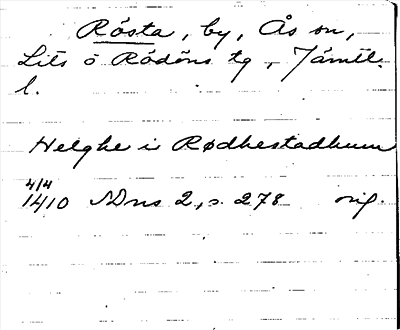 Rösta, by, Ås sn,
Lits o Rödöns tg, Jämtl.
l.
Helghe i Rødhestadhum
4/4
1410 NDns 2, s. 278 orig.